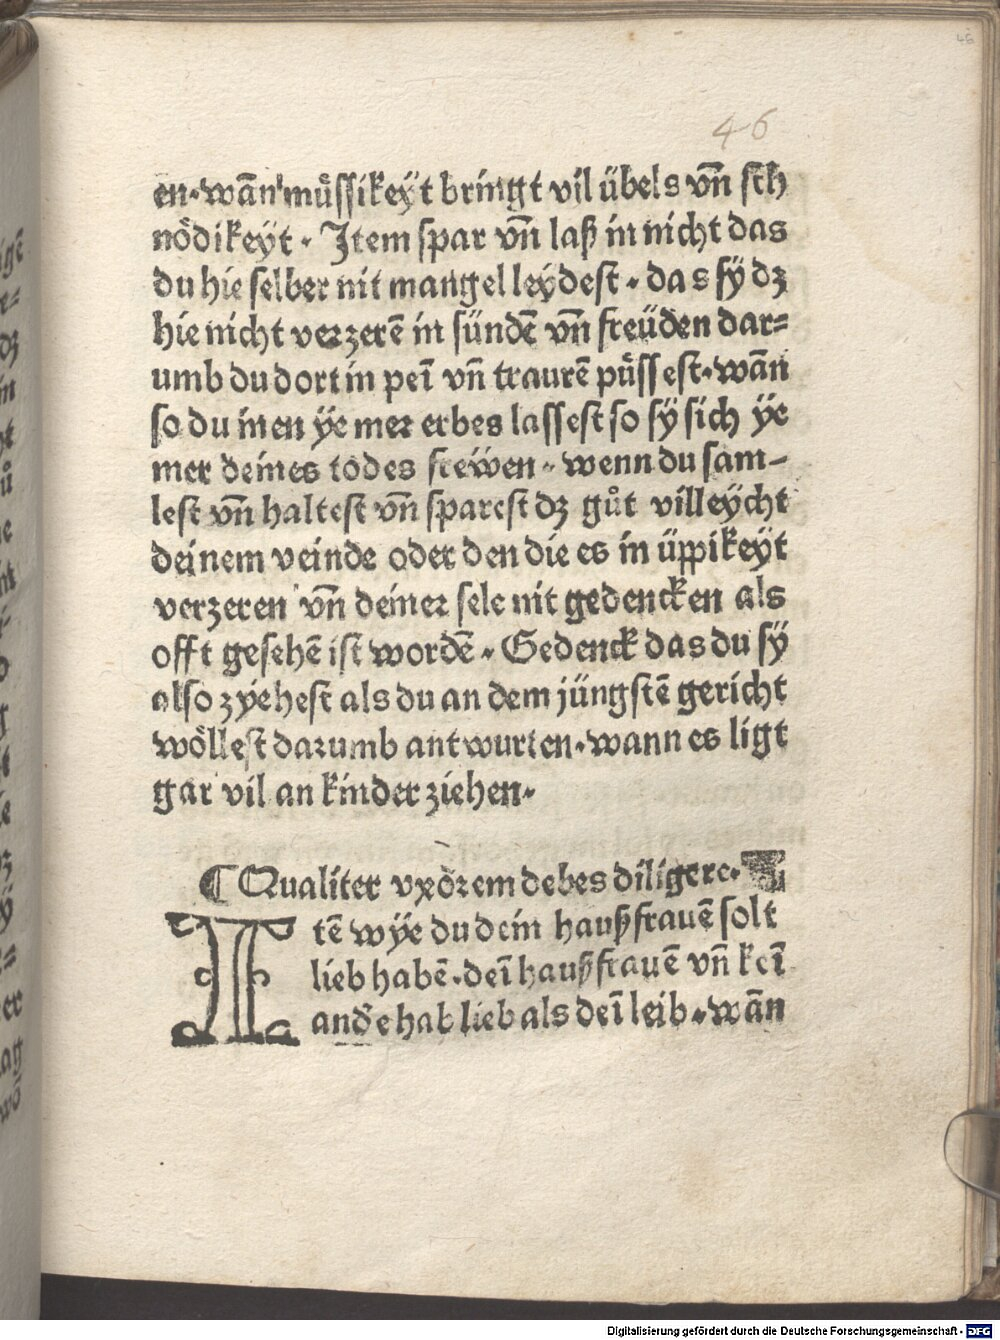 46
en·wan̄ mu̎ssikeÿt bringt vil übels vn̄ sch
nödikeÿt · Item spar vn̄ laß in nicht das
du hie selber nit mangel leÿdest · das sÿ dꝫ
hie nicht verzerē in sündē vn̄ freüden dar⸗
umb du dort in peī vn̄ traurē püssest·wān
so du inen ÿe mer erbes lassest so sÿ sich ÿe
mer deines todes freẅen · wenn du sam-
lest vn̄ haltest vn̄ sparest dꝫ gůt villeÿcht
deinem veinde oder den die es in üppikeÿt
verzeren vn̄ deiner sele nit gedencken als
offt gesehē ist wordē · Gedenck das du sÿ
also zÿehest als du an dem jüngstē gericht
wöllest darumb antwurten·wann es ligt
gar vil an kinder ziehen·
¶ Qualiter vxorem debes diligere·
Itē wÿe du dein haußfrauē solt
lieb habē·deī haußfrauē vn̄ keī
andͤe hab lieb als deī leib·wān
Digitalisierung gefördert durch die Deutsche Forschungsgemeinschaft - DFG